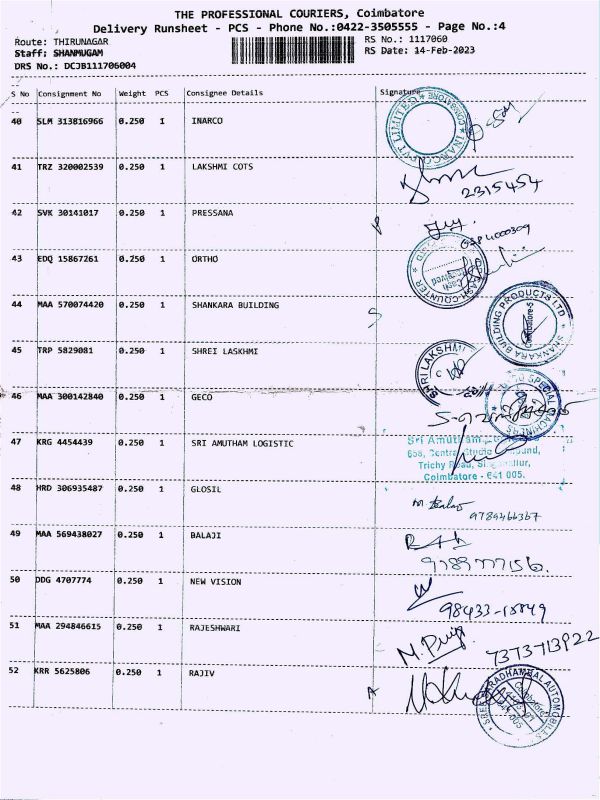 THE PROFESSIONAL COURIERS, Coimbatore
Delivery Runsheet - PCS - Phone No.:0422-3505555 - Page No.:4
Route: THIRUNAGAR
RS No.: 1117060
Staff: SHANMUGAM
RS Date: 14-Feb-2023
DRS No.: DCJB111706004
S No Consignment No Weight PCS Consignee Details Signature
40 SLM 313816966 0.250 1 INARCO
41 TRZ 320002539 0.250 1 LAKSHMI COTS
2315454
42 SVK 30141017 0.250 1 PRESSANA
43 EDQ 15867261 0.250 1 ORTHO
CASH COUNTER
44 MAA 570074420 0.250 1 SHANKARA BUILDING
SHANKARA BUILDING PRODUCTS LTD
45 TRP 5829081 0.250 1 SHREI LASKHMI
SHRI LAKSHMI
46 MAA 300142840 0.250 1 GECO
47 KRG 4454439 0.250 1 SRI AMUTHAM LOGISTIC
Sri Amutham
Trichy Road, Singanallur,
Coimbatore - 641 005.
48 HRD 306935487 0.250 1 GLOSIL
9789466367
49 MAA 569438027 0.250 1 BALAJI
50 DDG 4707774 0.250 1 NEW VISION
51 MAA 294846615 0.250 1 RAJESHWARI
M. Priya
7373713922
52 KRR 5625806 0.250 1 RAJIV